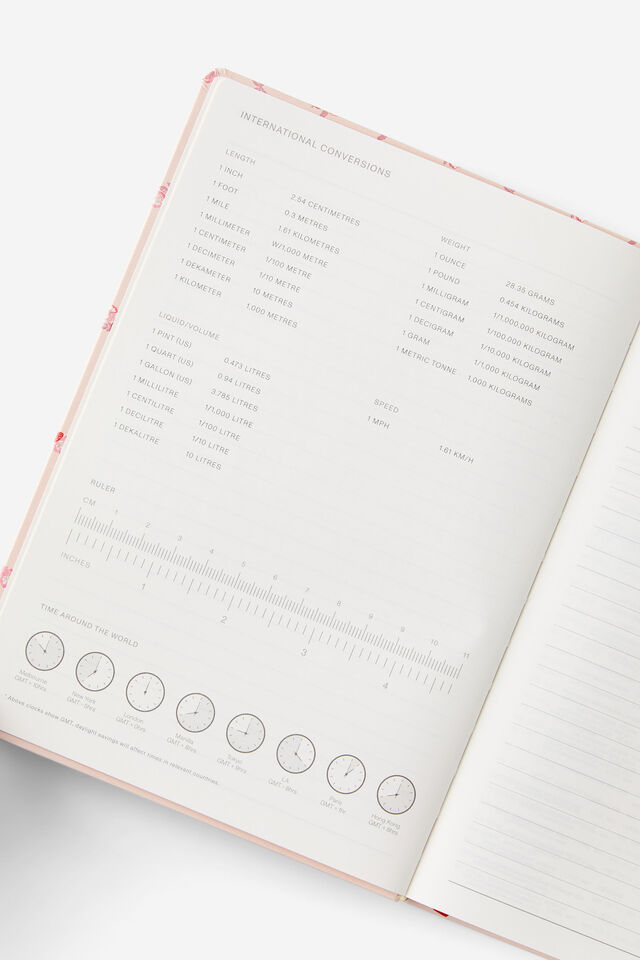 INTERNATIONAL CONVERSIONS
LENGTH
1 INCH 2.54 CENTIMETRES
1 FOOT 0.3 METRES
1 MILE 1.61 KILOMETRES
1 MILLIMETER W/1,000 METRE
1 CENTIMETER 1/100 METRE
1 DECIMETER 1/10 METRE
1 DEKAMETER 10 METRES
1 KILOMETER 1,000 METRES
WEIGHT
1 OUNCE 28.35 GRAMS
1 POUND 0.454 KILOGRAMS
1 MILLIGRAM 1/1,000,000 KILOGRAM
1 CENTIGRAM 1/100,000 KILOGRAM
1 DECIGRAM 1/10,000 KILOGRAM
1 GRAM 1/1,000 KILOGRAM
1 METRIC TONNE 1,000 KILOGRAMS
LIQUID/VOLUME
1 PINT (US) 0.473 LITRES
1 QUART (US) 0.94 LITRES
1 GALLON (US) 3.785 LITRES
1 MILLILITRE 1/1,000 LITRE
1 CENTILITRE 1/100 LITRE
1 DECILITRE 1/10 LITRE
1 DEKALITRE 10 LITRES
SPEED
1 MPH 1.61 KM/H
RULER
CM 1 2 3 4 5 6 7 8 9 10 11
INCHES 1 2 3 4
TIME AROUND THE WORLD
Melbourne
GMT + 10hrs
New York
GMT - 5hrs
London
GMT + 0hrs
Manila
GMT + 8hrs
Tokyo
GMT + 9hrs
LA
GMT - 8hrs
Paris
GMT + 1hr
Hong Kong
GMT + 8hrs
* Above clocks show GMT, daylight savings will affect times in relevant countries.